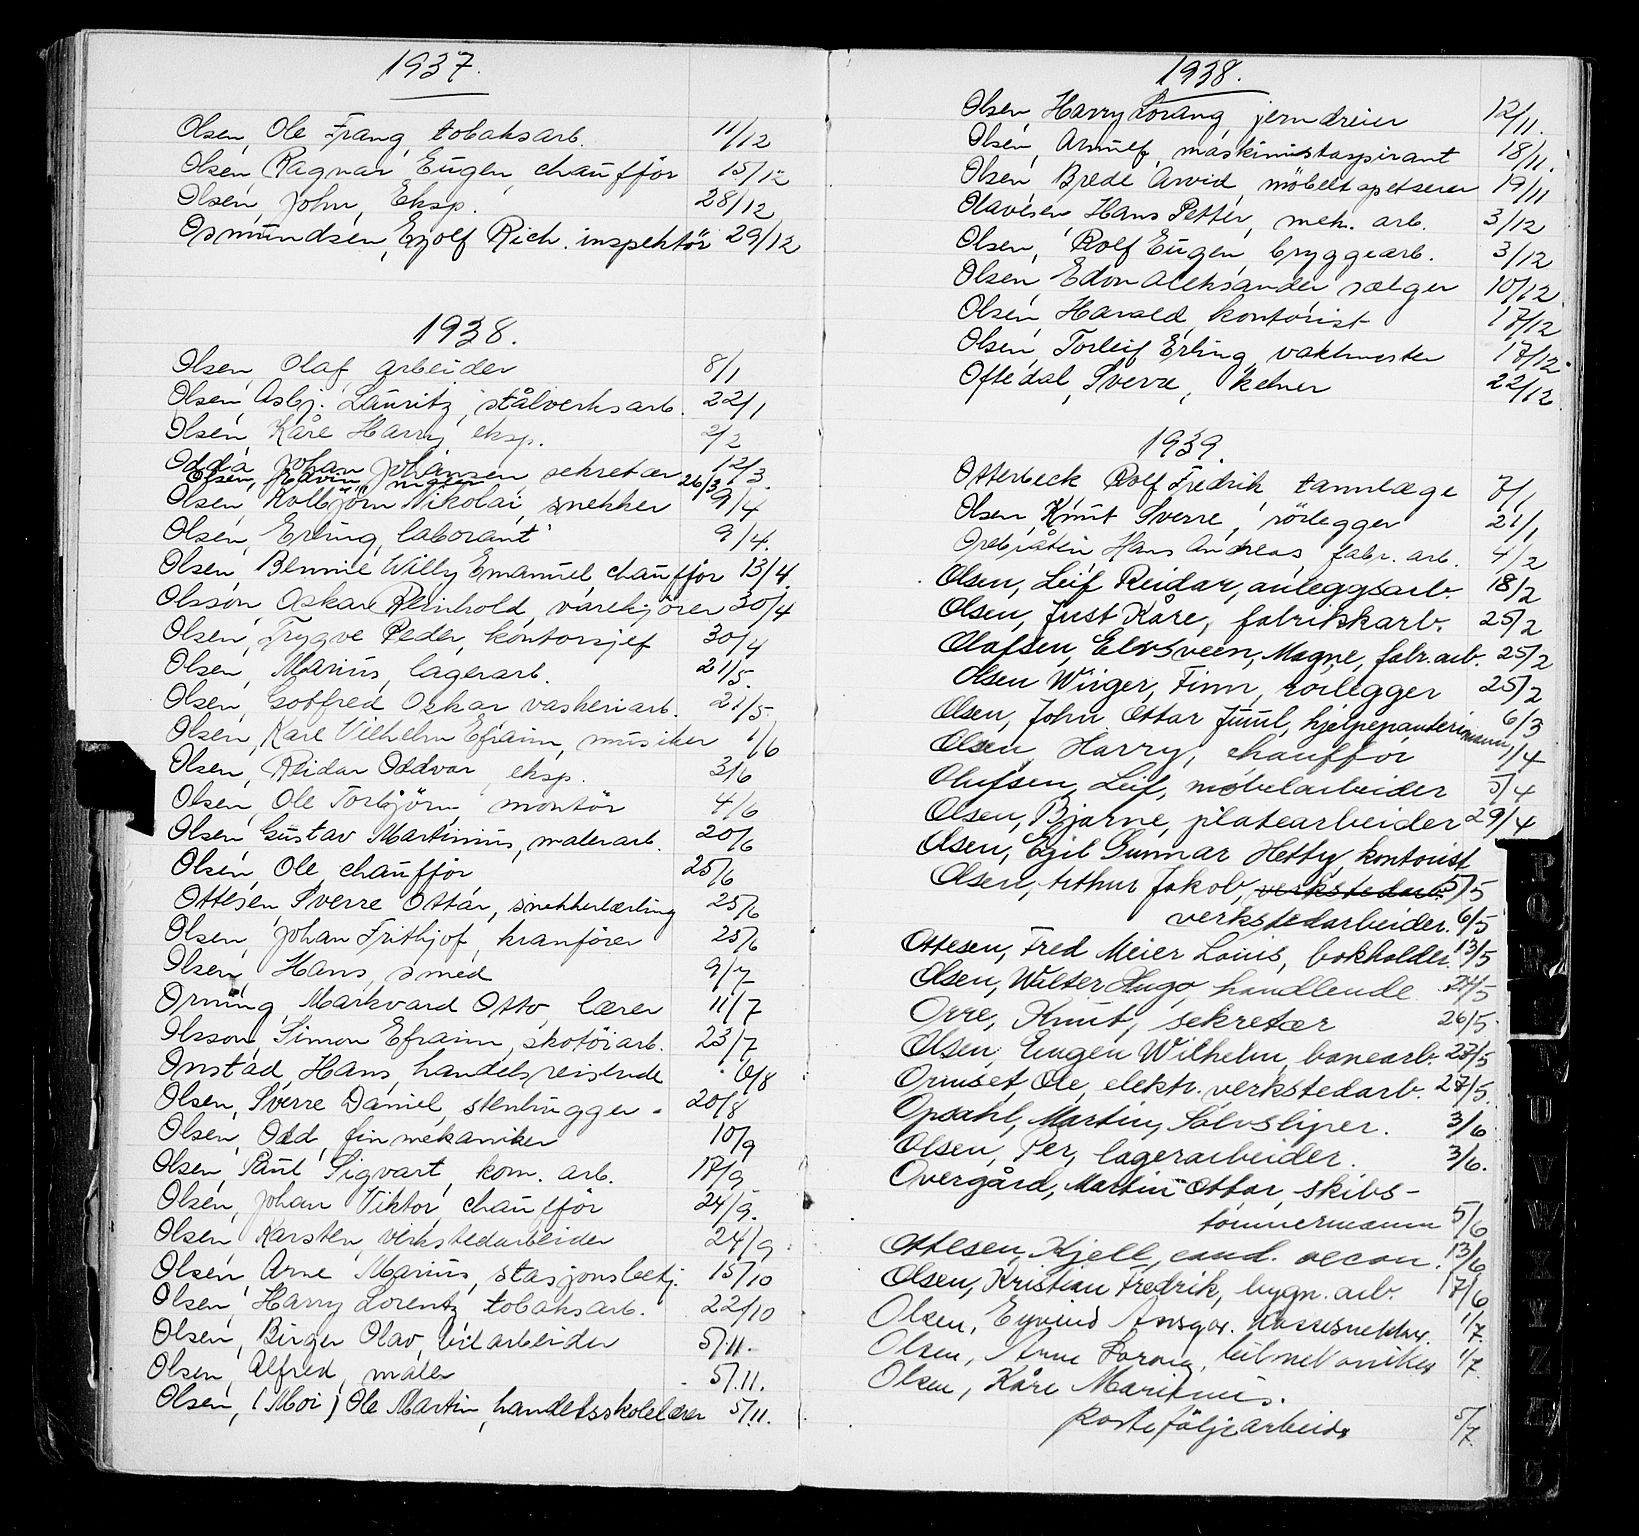 1937.
Olsen, Ole Frang, tobaksarb. 11/12
Olsen, Ragnar Eugen, chaufför 15/12
Olsen, John, Eksp. 28/12
Osmundsen, Eyolf Rich. inspektör 29/12
1938.
Olsen, Olaf, arbeider 8/1
Olsen, Asbj. Lauritz, stålverksarb. 22/1
Olsen, Kåre Harry, eksp. 2/2
Odda, Johan Johansen sekretær 12/3.
Olsen, Edvin, 26/3
Olsen, Kolbjörn Nikolai, snekker 9/4
Olsen, Erling, laborant 9/4.
Olsen, Bennie Willy Emanuel, chaufför 13/4.
Olsson, Oskar Reinhold, varekjörer 30/4
Olsen, Trygve Peder, kontorsjef 30/4
Olsen, Marius, lagerarb. 21/5.
Olsen, Gotfred Oskar vaskeriarb. 21/5.
Olsen, Karl Vilhelm Efraim, musiker 1/6
Olsen, Reidar Oddvar, eksp. 3/6
Olsen, Ole Torbjörn, montör 4/6
Olsen, Gustav Martinius, malerarb. 20/6
Olsen, Ole, chauffför 25/6
Ottesen Sverre Ottar, snekkerlærling 25/6
Olsen, Johan Frithjof, kranförer 25/6
Olsen, Hans, smed 9/7
Orning, Markvard Otto, lærer 11/7
Olsson, Simon Efraim, skotöiarb. 23/7
Onstad, Hans, handelsreisende 6/8
Olsen, Sverre Daniel, stenhugger 20/8
Olsen, Odd, finmekaniker 10/9
Olsen, Paul Sigvart, kom. arb. 17/9
Olsen, Johan Viktor, chauffför 24/9.
Olsen, Karsten, verkstedarbeider 24/9.
Olsen, Arne Marius, stasjonsbetj. 15/10
Olsen, Harry Lorentz, tobaksarb. 22/10
Olsen, Birger Olav, veiarbeider 5/11.
Olsen, Alfred, maler 5/11.
Olsen, (Moi) Ole Martin, handelsskolelærer 5/11.
1938.
Olsen, Harry Lorang, jerndreier 12/11.
Olsen, Arnulf, maskinistaspirant 18/11.
Olsen, Brede Arvid, möbeltapetserer 19/11
Olavesen Hans Petter, mek. arb. 3/12
Olsen, Rolf Eugen, bryggearb. 3/12
Olsen, Edon Aleksander, sælger 10/12.
Olsen, Harald, kontorist 17/12
Olsen, Torleif Erling, vaktmester 17/12.
Oftedal, Sverre, kelner 22/12.
1939.
Otterbeck Rolf Fredrik tannlæge 7/1
Olsen, Knut Sverre, rörlegger 21/1
Hans Andreas, fabr. arb. 4/2
Olsen, Leif Reidar, anleggsarb. 18/2
Olsen, Just Kåre, fabrikkarb. 25/2
Olafsen, Elvsveen, Magne, fabr. arb. 25/2
Olsen Wiiger, Finn, rörlegger 25/2
Olsen, John Ottar Juul, hjelpepanterimann 6/3
Olsen, Harry, chauffor 1/4
Olufsen, Leif, møbelarbeider 5/4
Olsen, Bjarne, platearbeider 29/4
Olsen, Egil Gunnar Hetty, kontorist 5/5
Olsen, Arthur Jakob, verkstedarb.
verkstedarbeider. 6/5
Ottesen, Fred Meier Louis, bokholder. 13/5
Olsen, Walter Hugo, handlende 24/5
Orre, Knut, sekretær 26/5.
Olsen, Eugen Wilhelm, banearb. 27/5
Ormset, Ole, elektr. verkstedarb. 27/5.
Opsahl, Martin, Sölvsliper. 3/6
Olsen, Per, lagerarbeider. 3/6.
Overgård, Martin Ottar, skibs-
tömmermann 5/6
Ottesen, Kjell, cand. oecon. 13/6
Olsen, Kristian Fredrik, bygn. arb. 17/6
Olsen, Eyvind Ansgar. Kassesnekker. 1/7
Olsen, Arne bilmekaniker 1/7.
Olsen, Kåre Marinius.
Portefölje arbeider 5/7.
P
Q
R
S
T
U
V
W
X
Y
Z
Æ
Ø